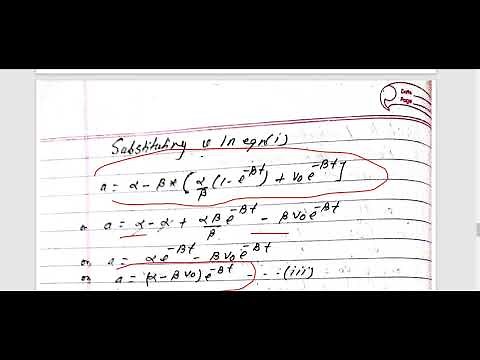 Date
Page
Substituting v in eqn(i)
a = α - β * [α/β (1 - e^-βt) + v0 e^-βt]
or a = α - α + αβ/β e^-βt - β v0 e^-βt
or a = α e^-βt - β v0 e^-βt
or a = (α - β v0) e^-βt - - - (iii)